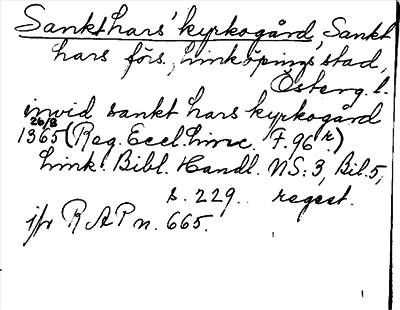 Sankt hars' kyrkogård, Sankt
hars förs., Linköpings stad,
Österg. l.
invid sankt hars kyrkogård
26/8
1365 (Reg. Eccl. Linc. F. 96 r.)
Link. Bibl. Handl. NS: 3, Bil. 5,
s. 229. regest.
jfr RAP n. 665.